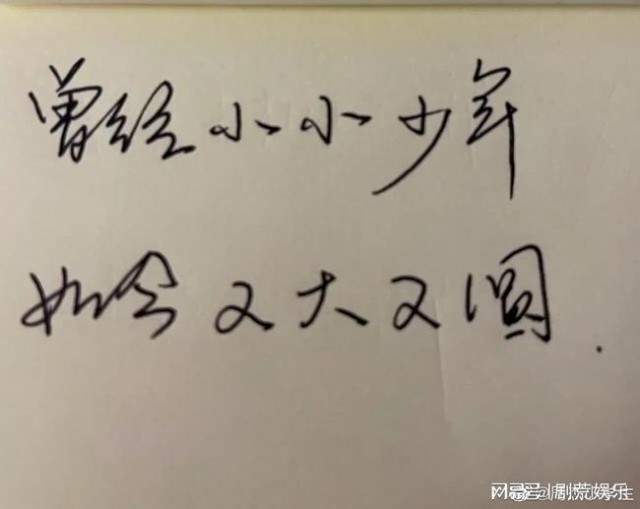 曾经小小少年
如今又大又圆.
网易号 | 剧荒娱乐